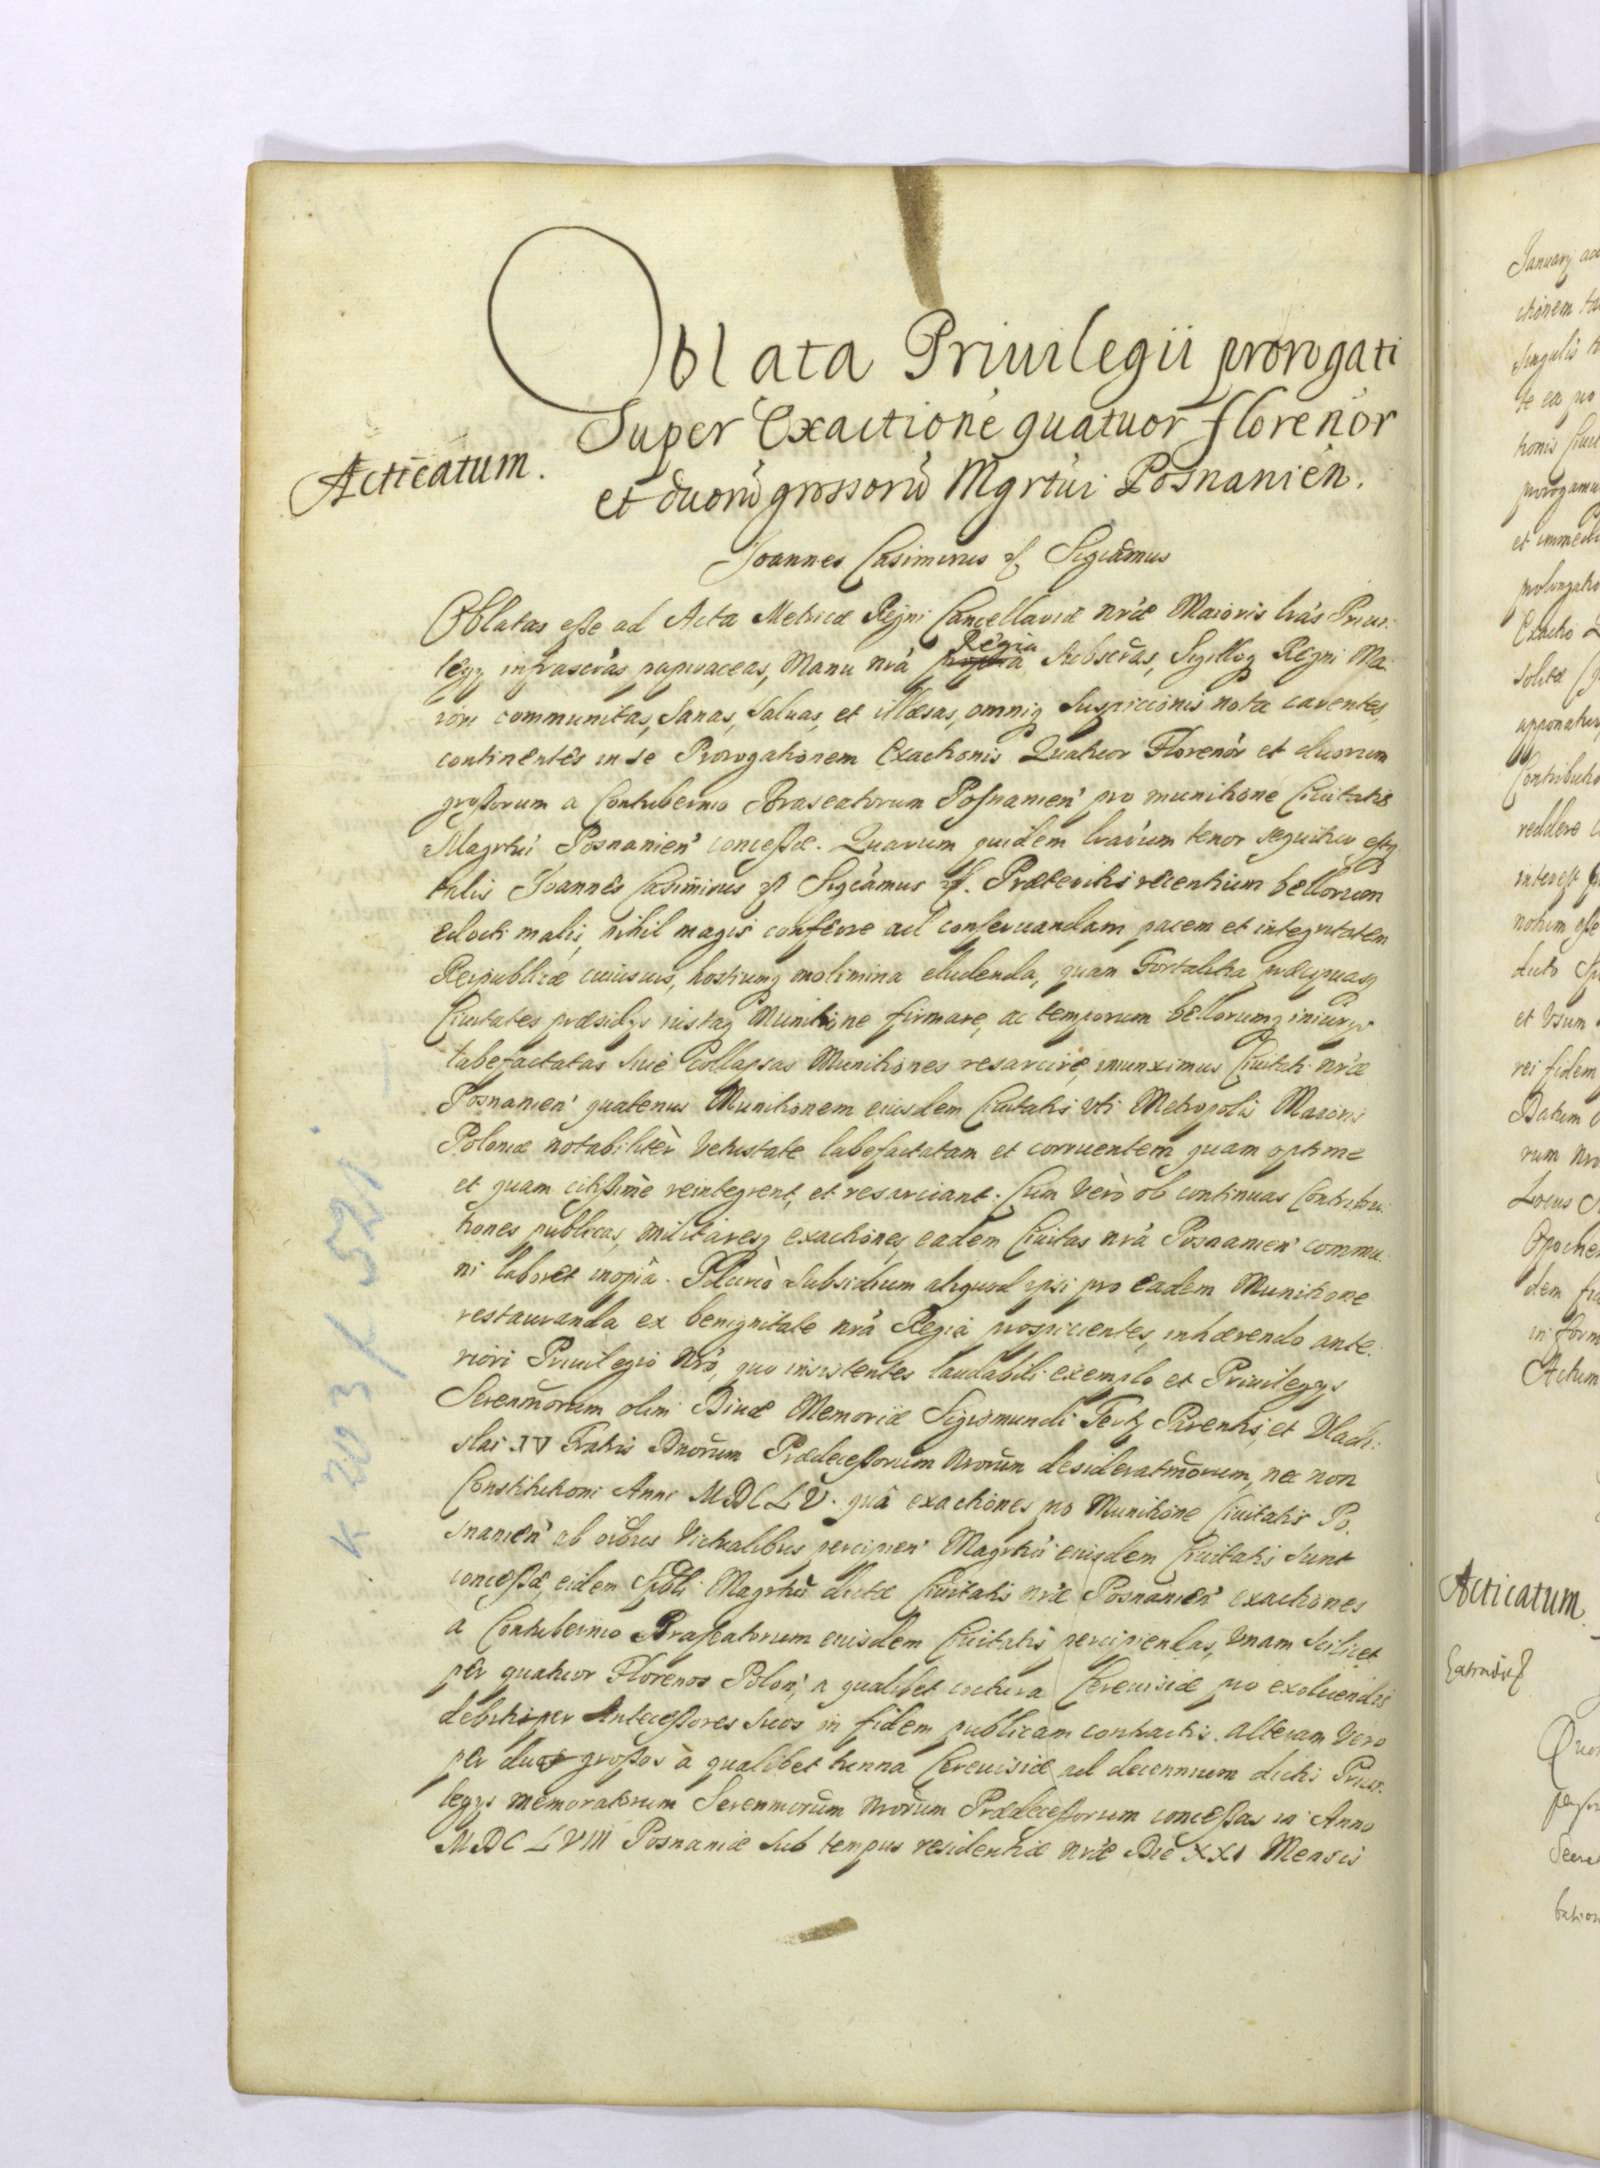 Oblata Priuilegii prorogati
Super Exactione quatuor florenor
et duorũ grossorũ Mgrtui Posnanien.
Acticatum.
Joannes Casimirus Sigcamus
Oblatas esse ad Acta Metricæ Regni Cancellariæ nræ Maioris lras Priui-
legy infrascras papiraceas, Manu nrã Regia subscras, Sigilloq Regni Ma-
iori communitas, Sanas, Saluas, et illæsas, omniq Suspicionis nota carentes,
continentes in se Prorogationem Exactionis Quatuor Florenor et duorum
grossorum a Contubernio Braseatorum Posnanien pro munitione Ciuitatis
Magrtui Posnanien concessæ. Quarum quidem lrarum tenor sequitur estq
talis Joannes Casimirus Sigcamus. Præteritis recentium bellorum
edocti malis, nihil magis conferre ad conseruandam pacem et integritatem
Reipublicæ cuiusuis, hostiumq molimina eludenda, quam Fortalitia præcipuasq
Ciuitates præsidys iustaq Munitione firmare, ac temporum bellorumq iniurys
labefactatas siue collapsas Munitiones resarcire, iniunximus Ciuitati nræ
Posnanien quatenus Munitionem eiusdem Ciuitatis uti Metropolis Maioris
Poloniæ notabiliter Vetustate labefactatam et corruentem quam optime
et quam citissime reintegrent, et resarciant. Cum Vero ob continuas Contribu-
tiones publicas, militaresq exactiones, eadem Ciuitas nra Posnanien commu-
ni laboret inopia. Idcirco Subsidium aliquod ipsi pro eadem Munitione
restauranda ex benignitate nra Regia prospicientes, inhærendo ante-
riori Priuilegio Nro, quo insistentes laudabili exemplo et Priuilegys
Serenmorum olim Diuæ Memoriæ Sigismundi Terty Parentis, et Vladi-
slai IV Fratris Dnorum Prædecessorum Nrorum desideratmorum, nec non
Constitutioni Anni MDCLV. quâ exactiones pro Munitione Ciuitatis Po-
snanien ab oibus Victualibus percipien Magrtui eiusdem Ciuitatis sunt
concessæ, eidem Spbli Magrtui dictæ Ciuitatis nræ Posnanien exactiones
a Contubernio Braseatorum eiusdem Ciuitatis percipiendas, Vnam scilicet
per quatuor Florenos Polon, a qualibet coctura Cereuisiæ pro exoluendis
debitis per Antecessores suos in fidem publicam contractis. alteram Vero
per duos grossos à qualibet tunna Cereuisiæ ad decennium dictis Priui-
legys memoratorum Serenmorum Nrorum Prædecessorum concessas in Anno
MDCLVIII Posnaniæ Sub tempus residentiæ nræ Die XXI Mensis
K 203 f 521
January
Acticatum